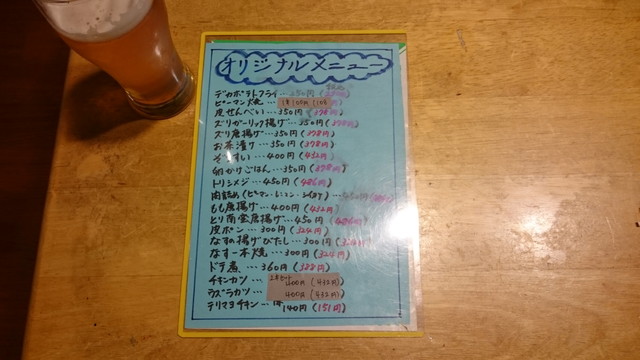 オリジナルメニュー
デカポテトフライ…350円
ピーマン焼…1本100円(108円)
皮せんべい…350円(378円)
ズリガーリック揚げ…350円(378円)
ズリ唐揚げ…350円(378円)
お茶漬け…350円(378円)
ぞうすい…400円(432円)
卵かけごはん…350円(378円)
トリシメジ…450円(486円)
肉詰め(ピーマン・レンコン・
もも唐揚げ…400円(432円)
とり南蛮唐揚げ…450円(486円)
皮ポン…300円(324円)
なすの揚げびたし…300円(324円)
なす一本焼…300円(324円)
ドテ煮…360円(388円)
チキンカツ…400円(432円)
ササミカツ…400円(432円)
テリマヨチキン…140円(151円)